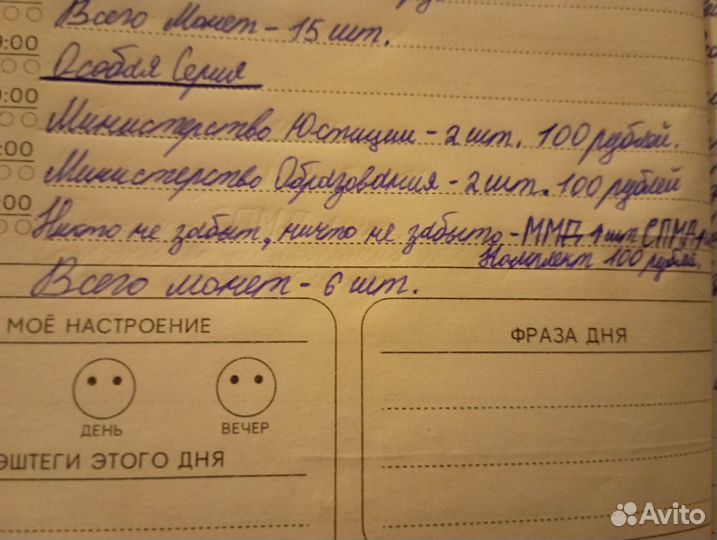 Всего Монет - 15 шт.
9:00
Особая Серия
0:00
Министерство Юстиции - 2 шт. 100 рублей.
:00
Министерство Образования - 2 шт. 100 рублей
:00
Никто не забыт, ничто не забыто - ММД 1 шт СПМД 1
Комплект 100 рублей.
Всего монет - 6 шт.
МОЁ НАСТРОЕНИЕ
ФРАЗА ДНЯ
ДЕНЬ
ВЕЧЕР
ЭШТЕГИ ЭТОГО ДНЯ
Avito